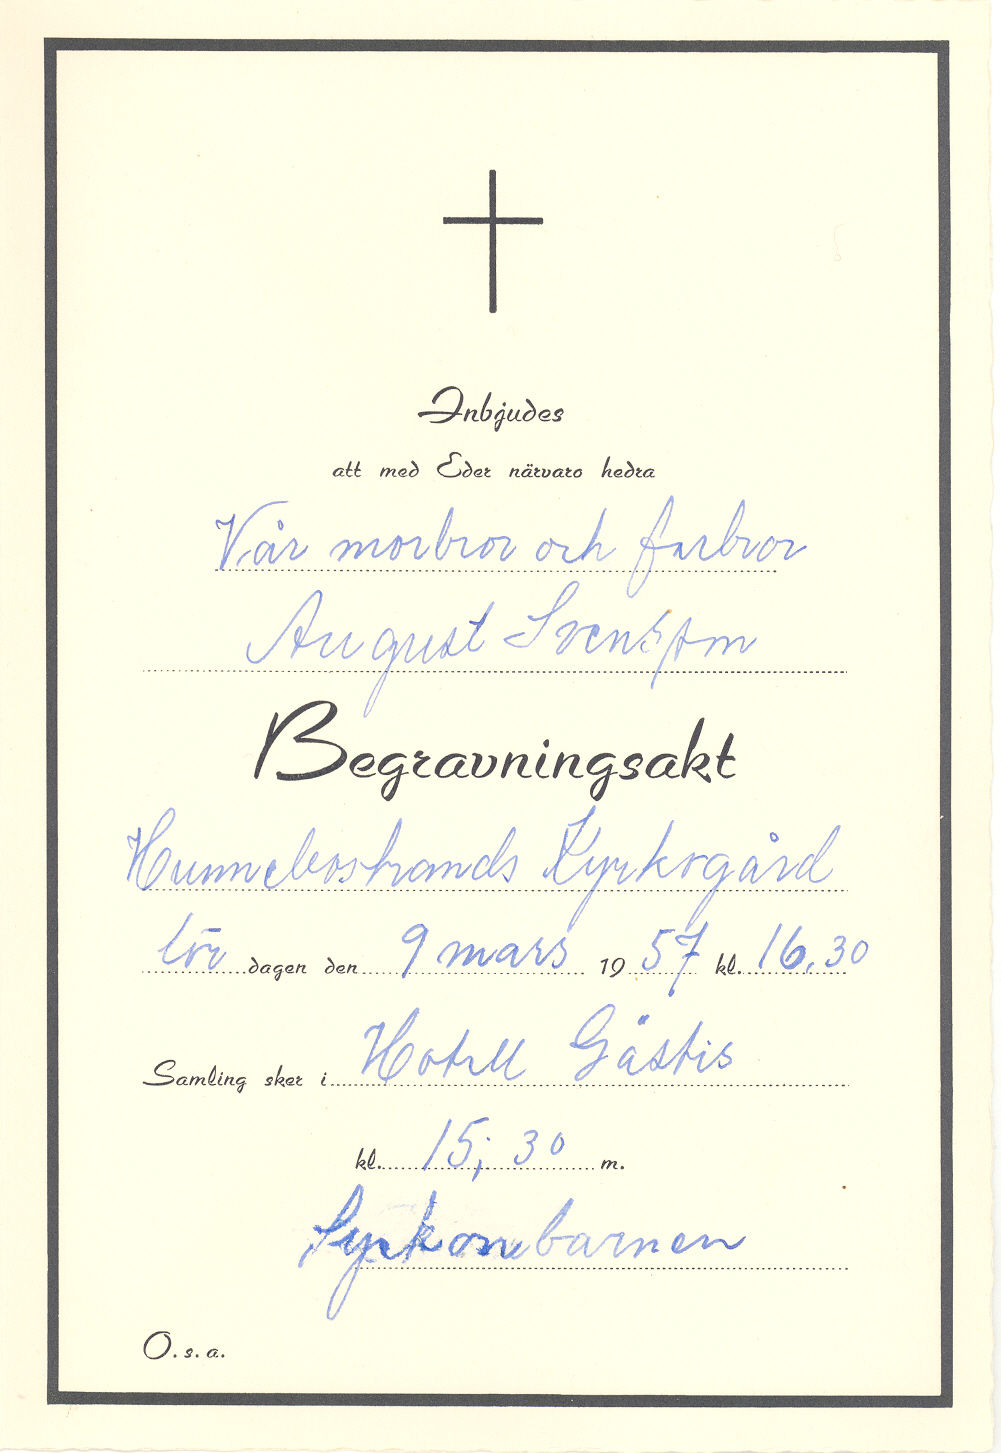 Inbjudes
att med Eder närvaro hedra
Vår morbror och farbror
August Svensson
Begravningsakt
Hunnebostrands Kyrkogård
lör dagen den 9 mars 1957 kl. 16.30
Samling sker i Hotell Gästis
kl. 15;30 m.
Syskonebarnen
O. s. a.